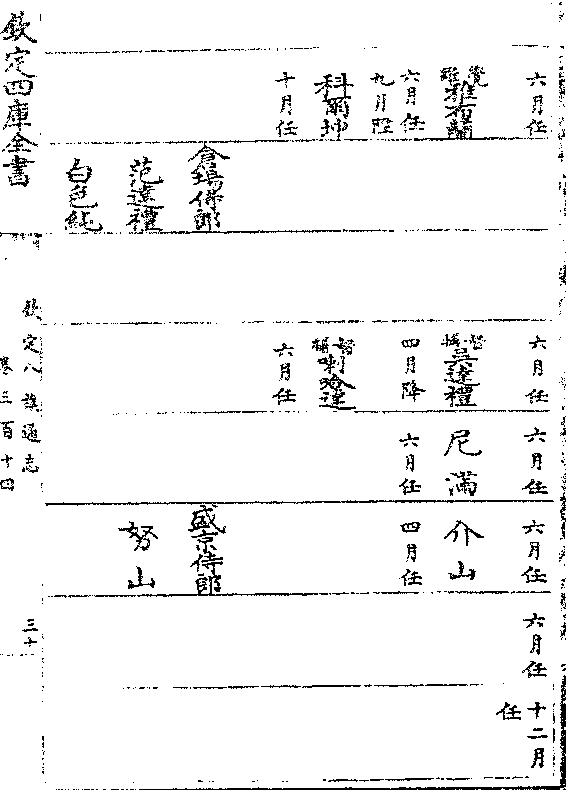 六月任
覺羅雅布蘭
六月任
九月陞
科爾坤
十月任
倉場侍郎
范達禮
白色純
六月任
督捕吳達禮
四月降
督捕喇哈達
六月任
六月任
尼滿
六月任
六月任
介山
四月任
盛京侍郎
努山
六月任
十二月
任
欽定四庫全書
欽定八旗通志
卷三百十四
三十